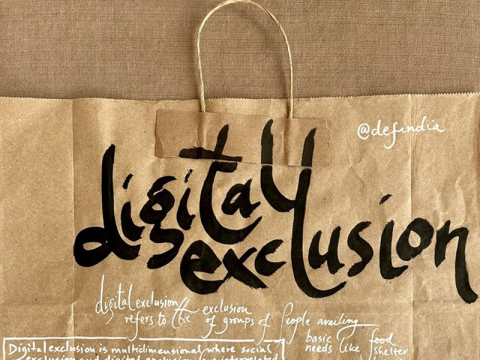 @defindia
digital
exclusion
digital exclusion
refers to the exclusion of groups of People availing
basic needs like food
shelter
Digital exclusion is multidimensional, where social
exclusion and digital exclusion